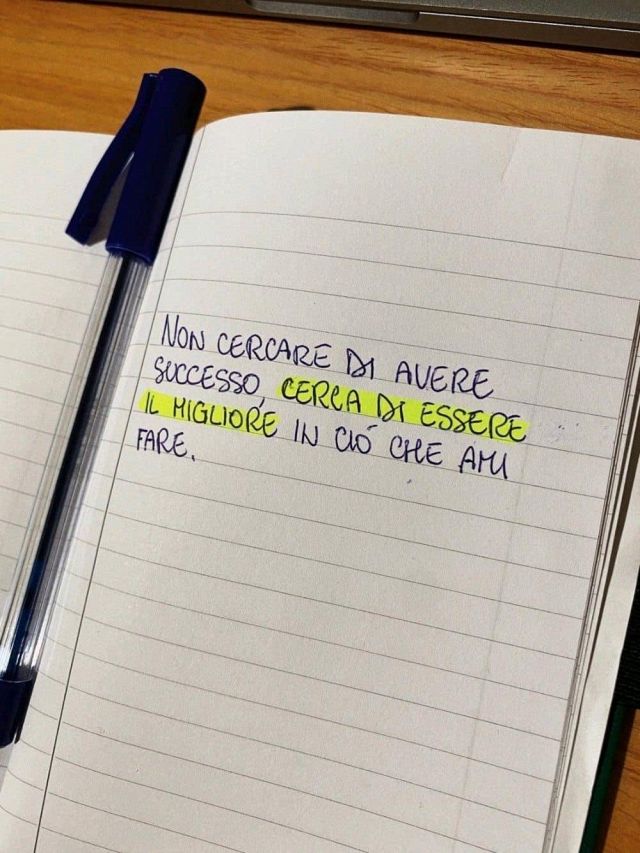 NON CERCARE DI AVERE
SUCCESSO, CERCA DI ESSERE
IL MIGLIORE IN CIÒ CHE AMI
FARE.